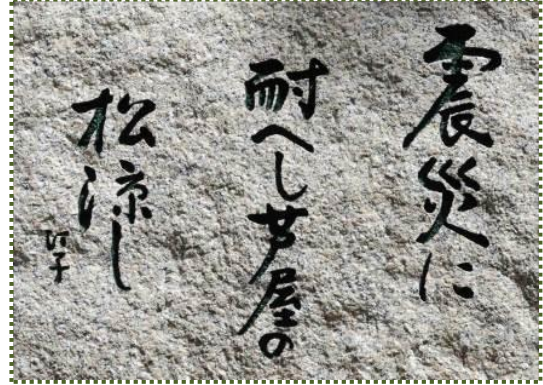 震災に
耐へし芦屋の
松涼し